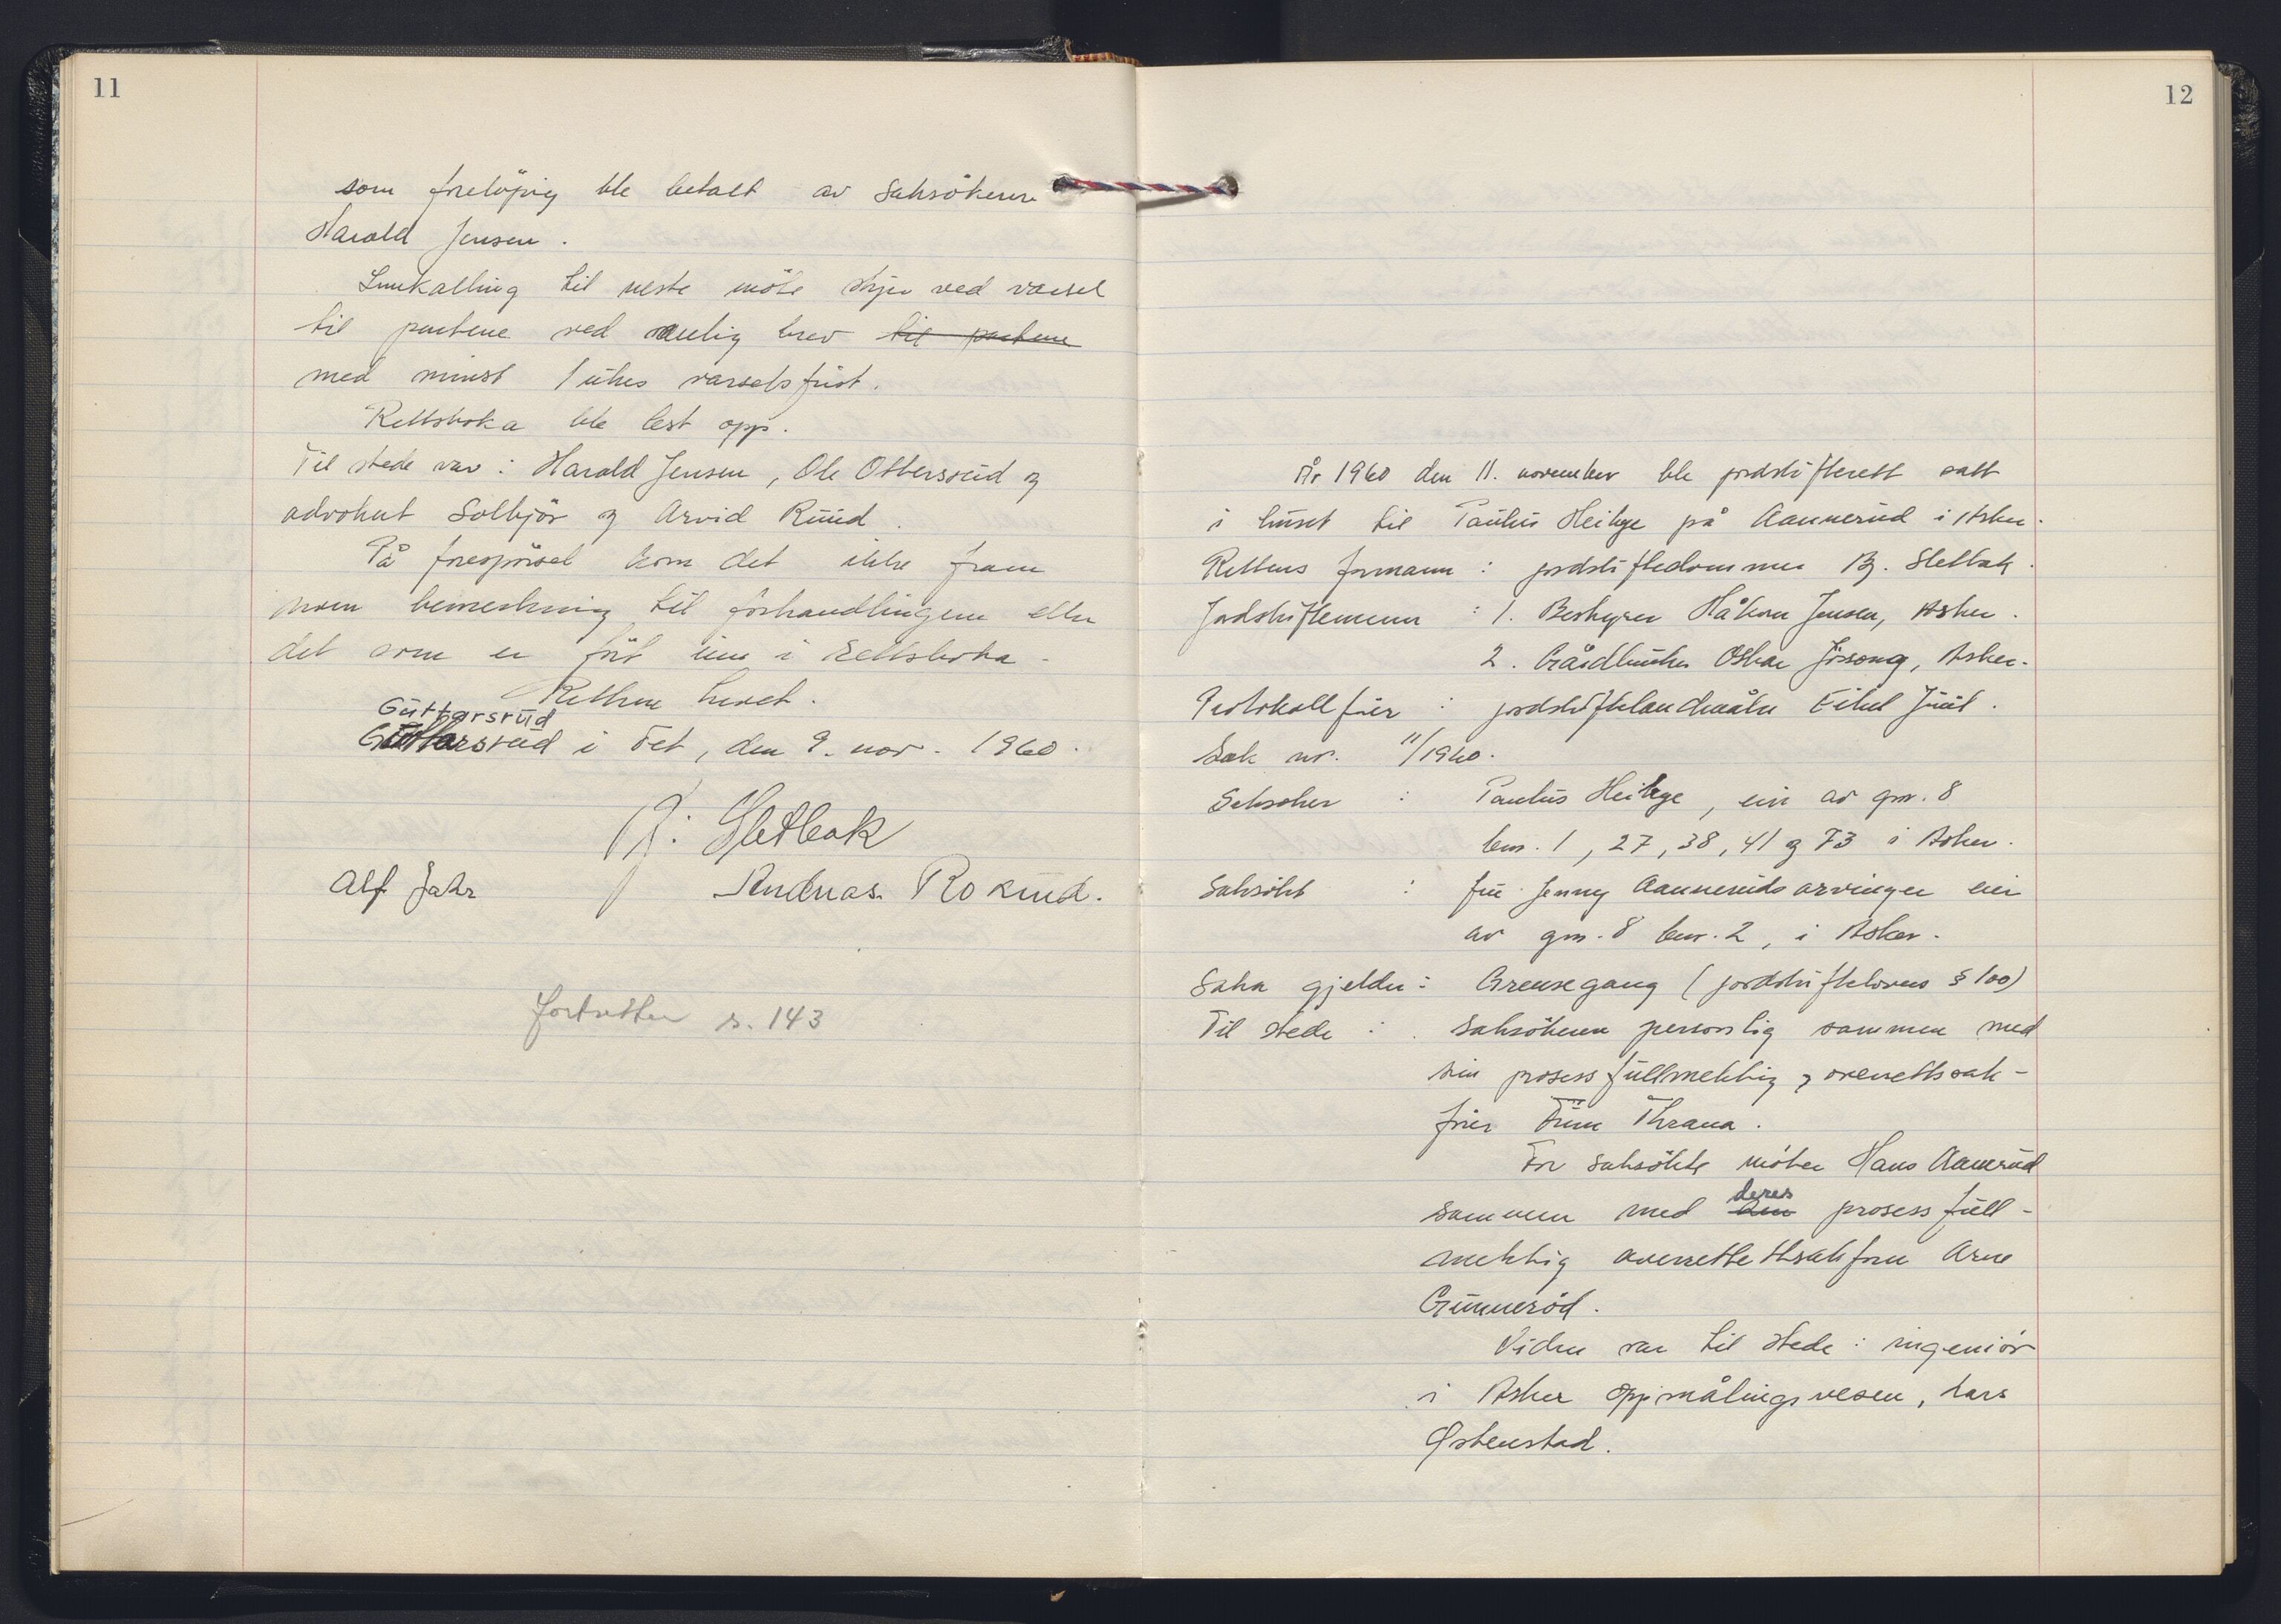 11
som foreløpig ble betalt av saksökeren
Harald Jensen.
Innkalling til neste möte skjer ved varsel
til partene ved vanlig brev til partene
med minst 1 ukes varselsfrist.
Rettsboka ble lest opp.
Til stede var: Harald Jensen, Ole Ottersrud og
advokat Solbjör og Arvid Ruud.
På forespörsel kom det ikke fram
noen bemerkning til forhandlingene eller
det som er fört inn i rettsboka.
Retten hevet.
Guttorsrud
i Fet, den 9. nov. 1960.
Bj. Sletbak
Alf Jahr Andreas Rokkud.
fortsetter s. 143
12
År 1960 den 11. november ble jordskifterett satt
i huset til Paulus Heilge på Aannerud i Asker.
Rettens formann : jordskiftedommer Bj. Sletbak.
Jordskiftemenn : 1. Bestyrer Håkon Jensen, Asker.
2. Gårdbruker Oskar Jössong, Asker.
Protokollförer : jordskiftelandmåler Eikel Juul.
Sak nr. 11/1960.
Saksöker : Paulus Heilge, eier av gnr. 8
bnr. 1, 27, 38, 41 og 73 i Asker.
Saksökt : fru Jenny Aanneruds arvinger eier
av gnr. 8 bnr. 2, i Asker.
Saka gjelder : Grensegang (jordskiftelovens § 100)
Til stede : saksökeren personlig sammen med
sin prosessfullmektig, overrettssak-
förer Finn Thrana.
For saksökte möter Hans Aanerud
sammen med deres prosessfull-
mektig overrettssakförer Arne
Gunneröd.
Videre var til stede : ingeniör
i Asker oppmålingsvesen, Lars
Østenstad.